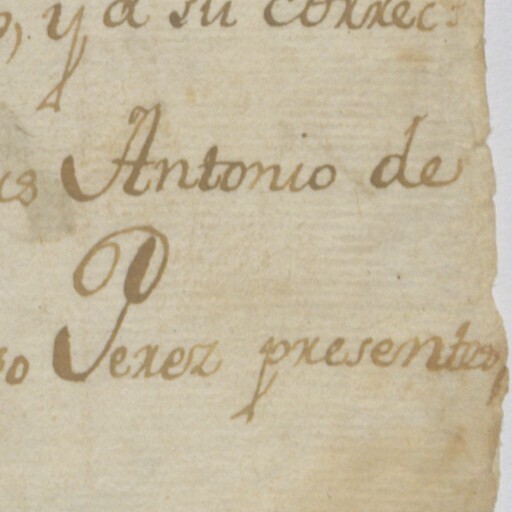 , y a su correc
Antonio de
Perez presentes,